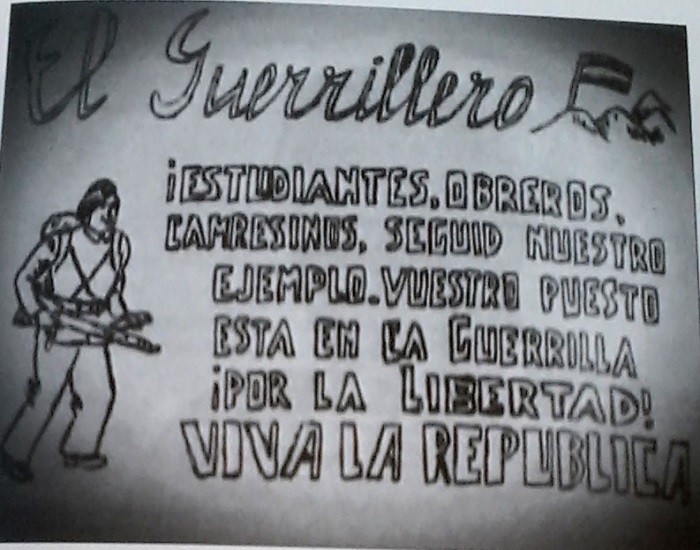 El Guerrillero
¡ESTUDIANTES, OBREROS,
CAMPESINOS, SEGUID NUESTRO
EJEMPLO. VUESTRO PUESTO
ESTA EN LA GUERRILLA
¡POR LA LIBERTAD!
VIVA LA REPUBLICA